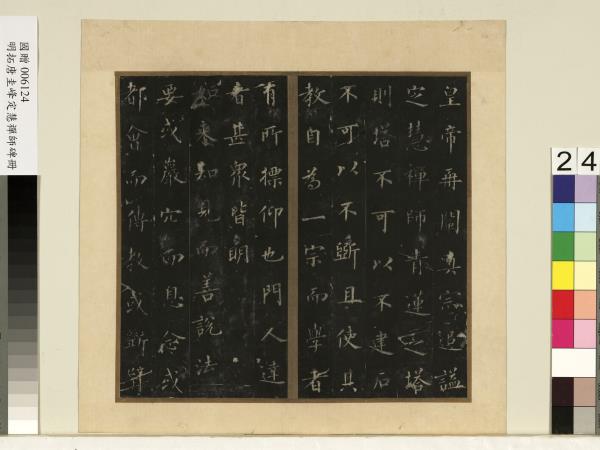 皇帝再闡真宗追諡
定慧禪師青蓮之塔
則塔不可以不建石
不可以不斲且使其
教自為一宗而學者
有所摽仰也門人達
者甚眾皆明
如來知見而善說法
要或巖穴而息念或
都會而傳教或斷臂
國贈 006124
明拓唐圭峰定慧禪師碑冊
24